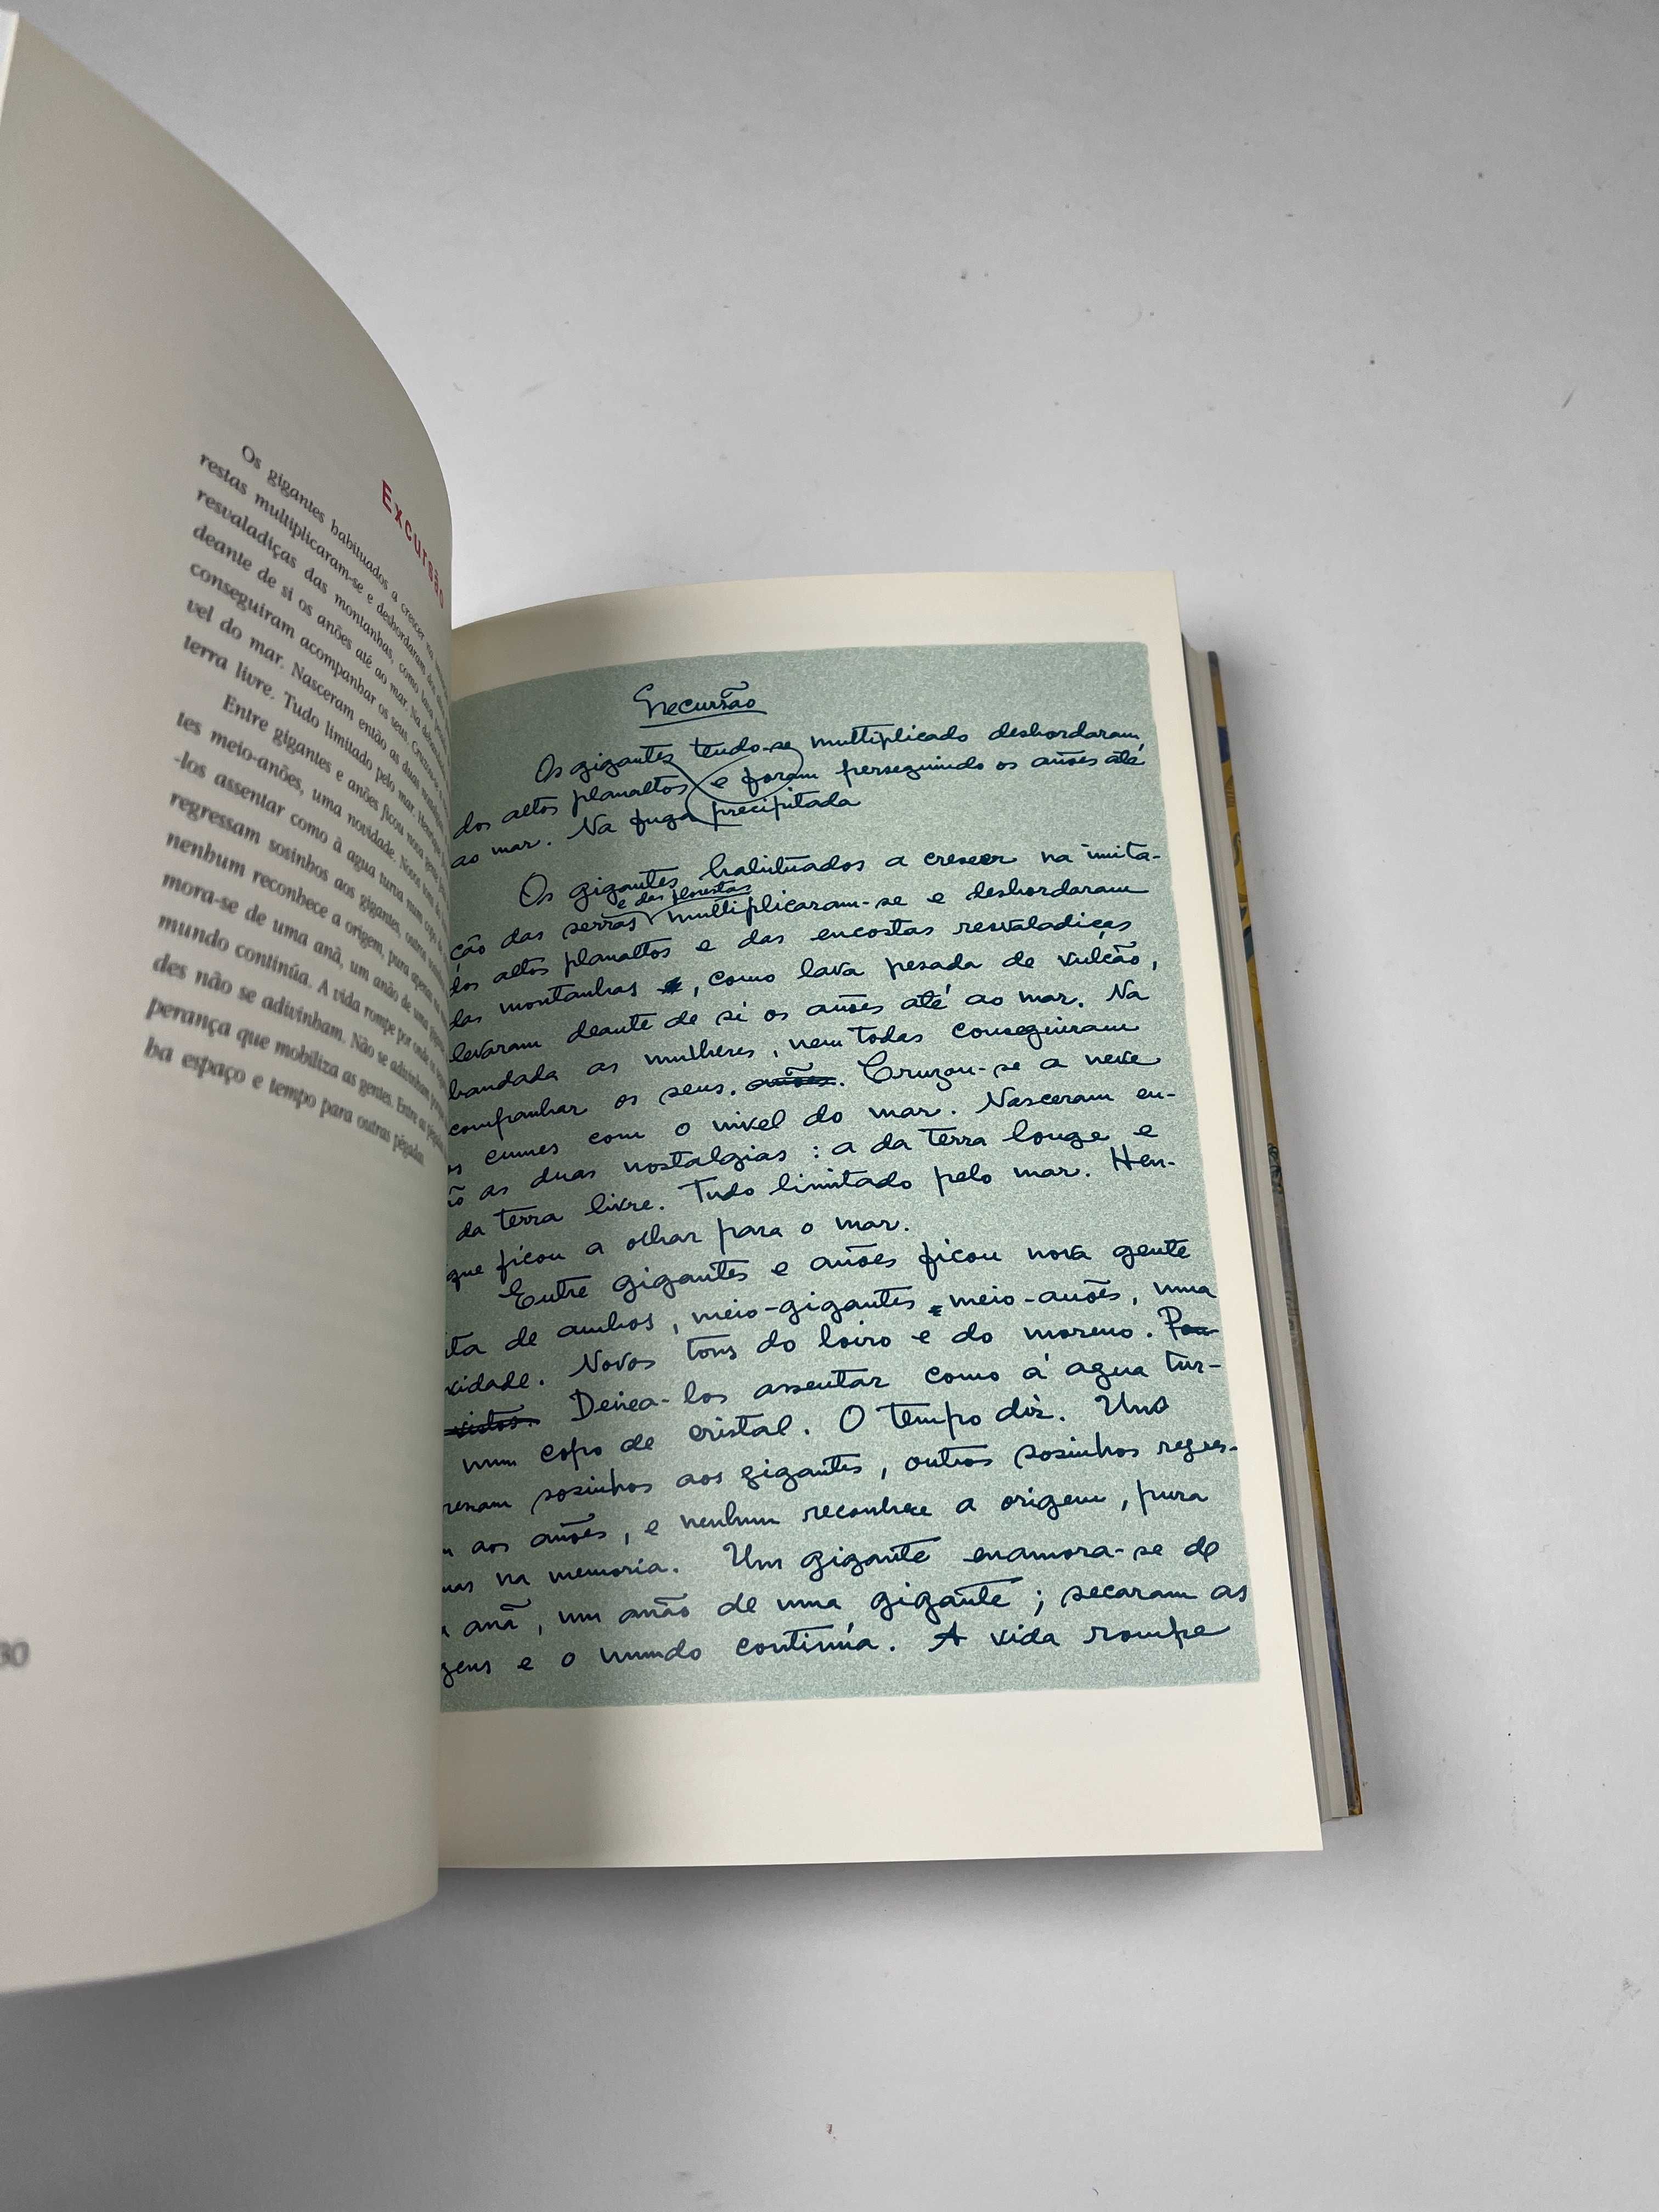 Excursão
Os gigantes habituados a crescer na
restas multiplicaram-se e desbordaram dos
resvaladiças das montanhas, como lava
deante de si os anões até ao mar. Na
conseguiram acompanhar os seus. Cruzou-se
vel do mar. Nasceram então as duas
terra livre. Tudo limitado pelo mar. Henrique
Entre gigantes e anões ficou nova gente
tes meio-anões, uma novidade. Novos tons do
-los assentar como à agua turva num copo de
regressam sosinhos aos gigantes, outros
nenhum reconhece a origem, pura apenas na
mora-se de uma anã, um anão de uma
mundo continúa. A vida rompe por onde
des não se adivinham. Não se adivinham
perança que mobiliza as gentes. Entre as
ba espaço e tempo para outras pégadas.
30
Excursão
Os gigantes tendo-se multiplicado desbordaram
dos altos planaltos e foram perseguindo os anões até
ao mar. Na fuga precipitada
Os gigantes habituados a crescer na imita-
e das florestas
ção das serras multiplicaram-se e desbordaram
dos altos planaltos e das encostas resvaladiças
das montanhas, como lava pesada de vulcão,
levaram deante de si os anões até ao mar. Na
bandada as mulheres, nem todas conseguiram
companhar os seus. anões. Cruzou-se a neve
os cumes com o nivel do mar. Nasceram en-
ão as duas nostalgias: a da terra longe e
da terra livre. Tudo limitado pelo mar. Hen-
que ficou a olhar para o mar.
Entre gigantes e anões ficou nova gente
ita de ambos, meio-gigantes meio-anões, uma
vidade. Novos tons do loiro e do moreno. Pou-
vistos. Deixea-los assentar como à agua tur-
num copo de cristal. O tempo diz. Uns
ressam sosinhos aos gigantes, outros sosinhos regres-
m aos anões, e nenhum reconhece a origem, pura
nas na memoria. Um gigante enamora-se de
a anã, um anão de uma gigante; secaram as
gens e o mundo continúa. A vida rompe